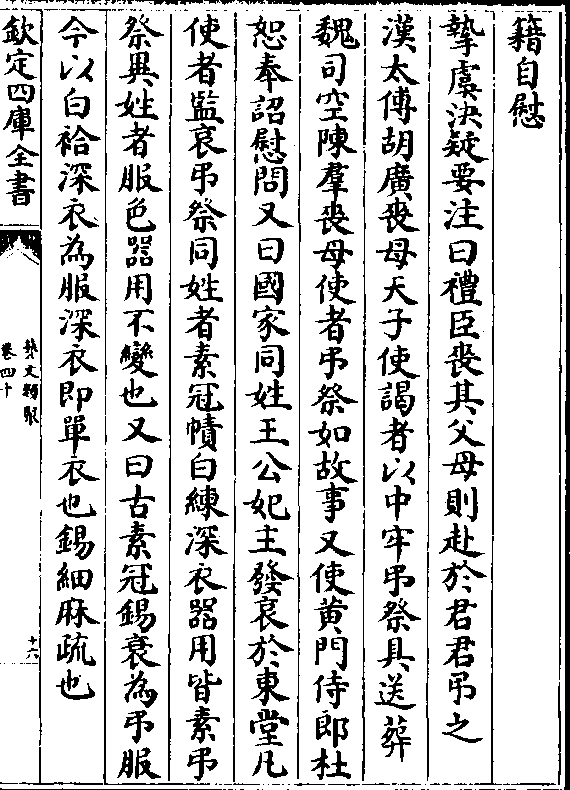 籍自慰
摯虞決疑要注曰禮臣喪其父母則赴於君君弔之
漢太傅胡廣喪母天子使謁者以中牢弔祭具送葬
魏司空陳羣喪母使者弔祭如故事又使黄門侍郎杜
恕奉詔慰問又曰國家同姓王公妃主發哀於東堂凡
使者監哀弔祭同姓者素冠幘白練深衣器用皆素弔
祭異姓者服色器用不變也又曰古素冠錫衰為弔服
今以白袷深衣為服深衣即單衣也錫細麻疏也
欽定四庫全書
藝文類聚
卷四十
十六